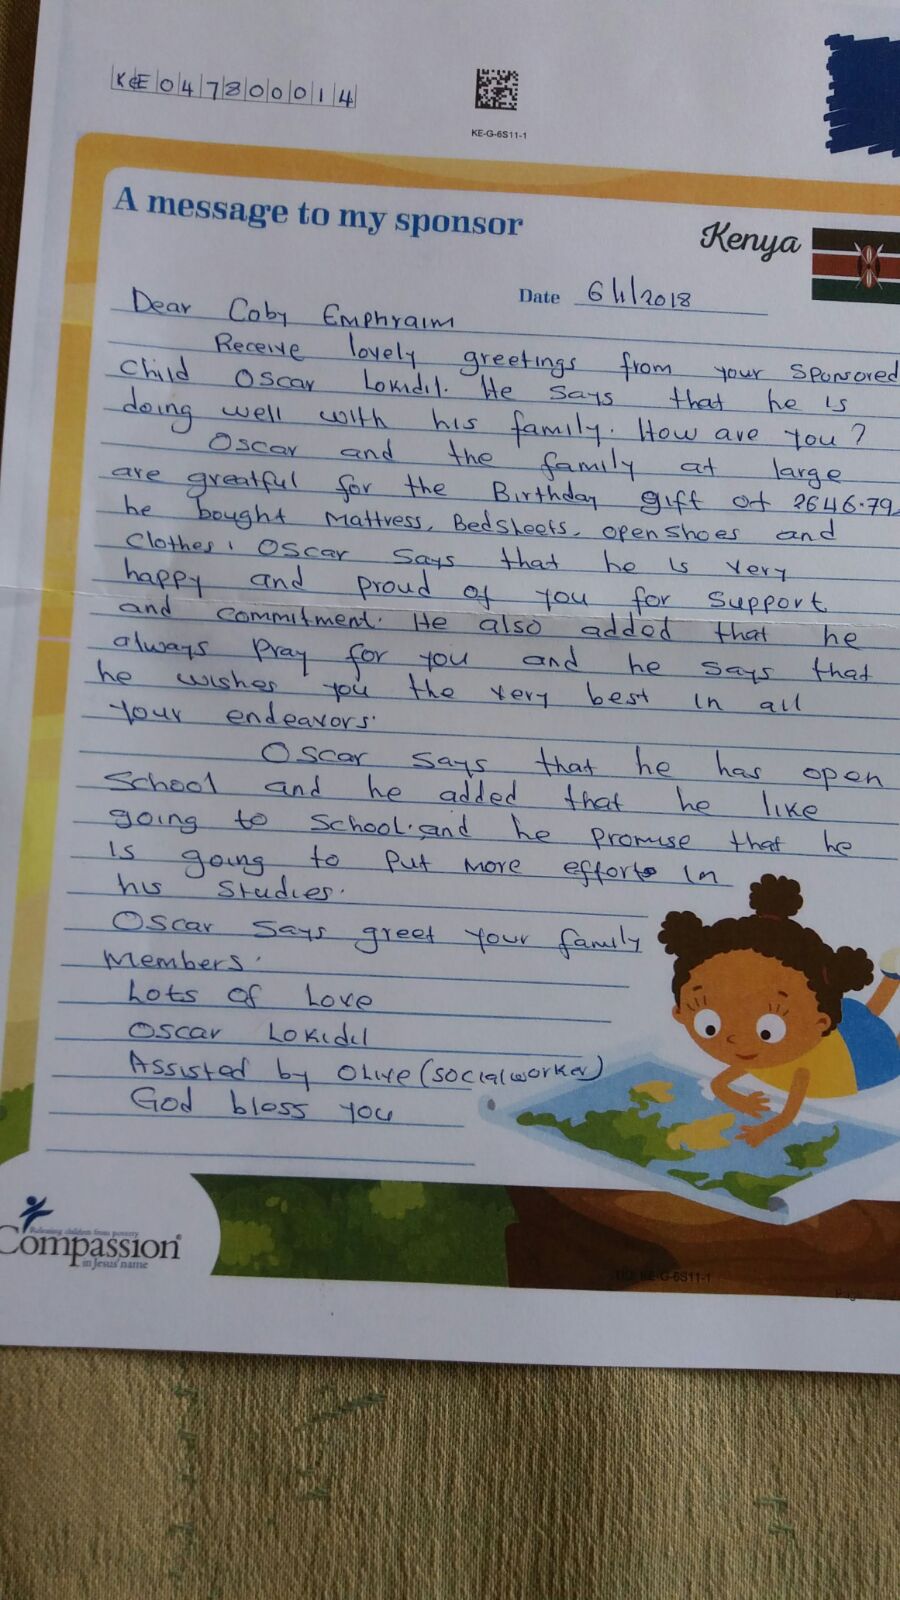 KE04780014
KE-G-6S11-1
A message to my sponsor
Kenya
Date 6/1/2018
Dear Coby Emphraim
Receive lovely greetings from your sponsored
child Oscar Lokidil. He says that he is
doing well with his family. How are you?
Oscar and the family at large
are greatful for the Birthday gift of 2646.79
he bought Mattress, Bedsheets, open shoes and
clothes. Oscar says that he is very
happy and proud of you for support
and commitment. He also added that he
always pray for you and he says that
he wishes you the very best in all
your endeavors.
Oscar says that he has open
School and he added that he like
going to school. and he promise that he
is going to put more efforts in
his studies.
Oscar says greet your family
Members.
Lots of Love
Oscar Lokidil
Assisted by Olive (socialworker)
God bless you
Releasing children from poverty
Compassion®
in Jesus' name
KE-G-6S11-1